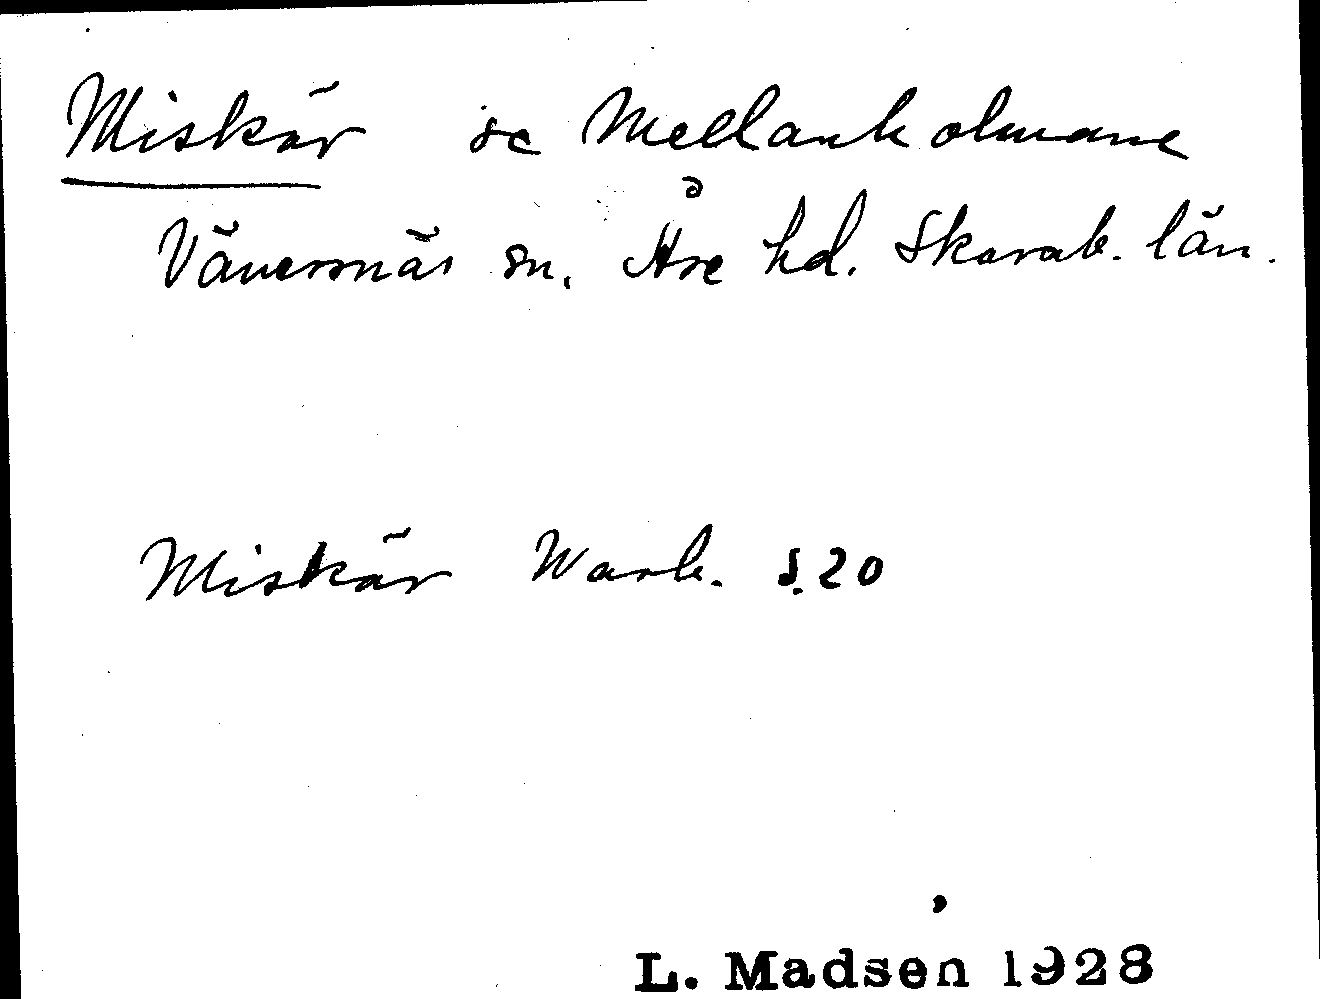 Miskär se Mellanholmane
Vänersnäs sn. Åse hd. Skarab. län.
Miskär Wark. s. 20
L. Madsen 1928